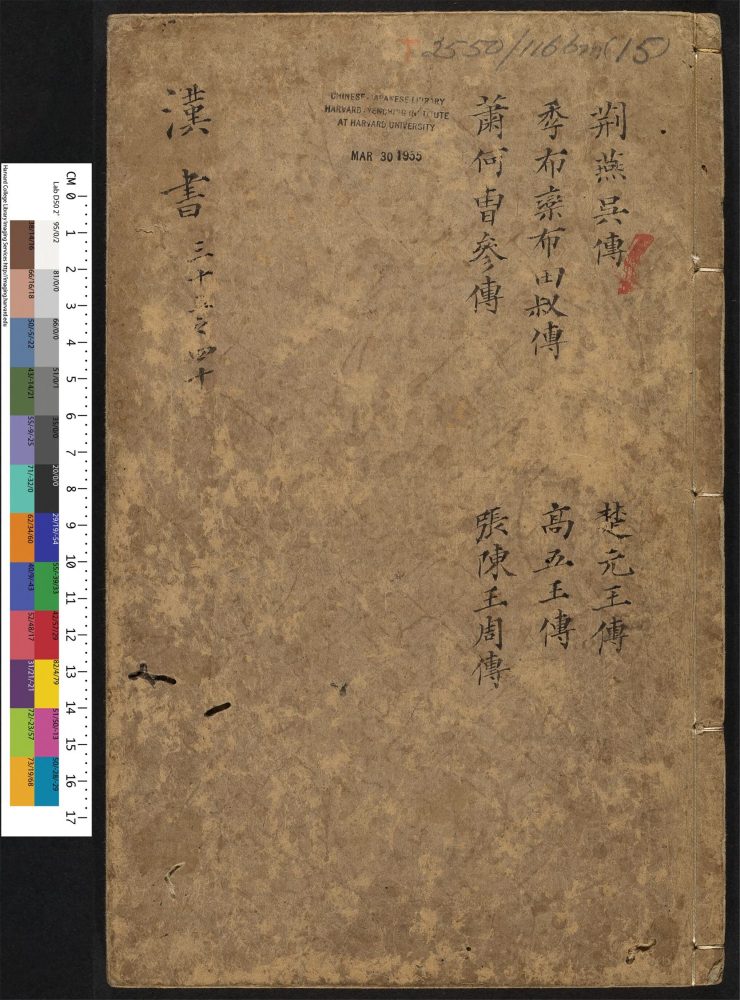 荆燕吳傳
楚元王傳
季布欒布田叔傳
高五王傳
蕭何曹參傳
張陳王周傳
漢書
三十五之四十
CHINESE-JAPANESE LIBRARY
HARVARD-YENCHING INSTITUTE
AT HARVARD UNIVERSITY
MAR 30 1935
CM 0 1 2 3 4 5 6 7 8 9 10 11 12 13 14 15 16 17
Harvard College Library Imaging Services http://imaging.harvard.edu